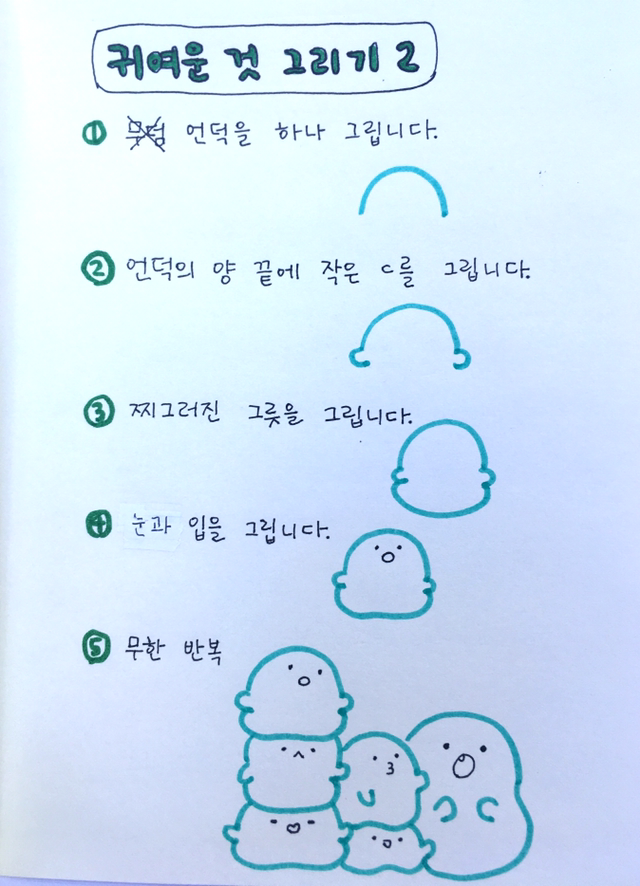 귀여운 것 그리기 2
① 무덤 언덕을 하나 그립니다.
② 언덕의 양 끝에 작은 c를 그립니다.
③ 찌그러진 그릇을 그립니다.
④ 눈과 입을 그립니다.
⑤ 무한 반복